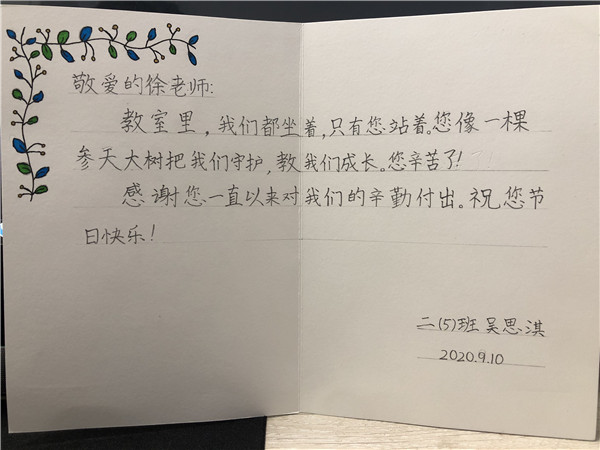 敬爱的徐老师:
教室里,我们都坐着,只有您站着。您像一棵
参天大树把我们守护,教我们成长。您辛苦了!
感谢您一直以来对我们的辛勤付出。祝您节
日快乐!
二(5)班 吴思淇
2020.9.10